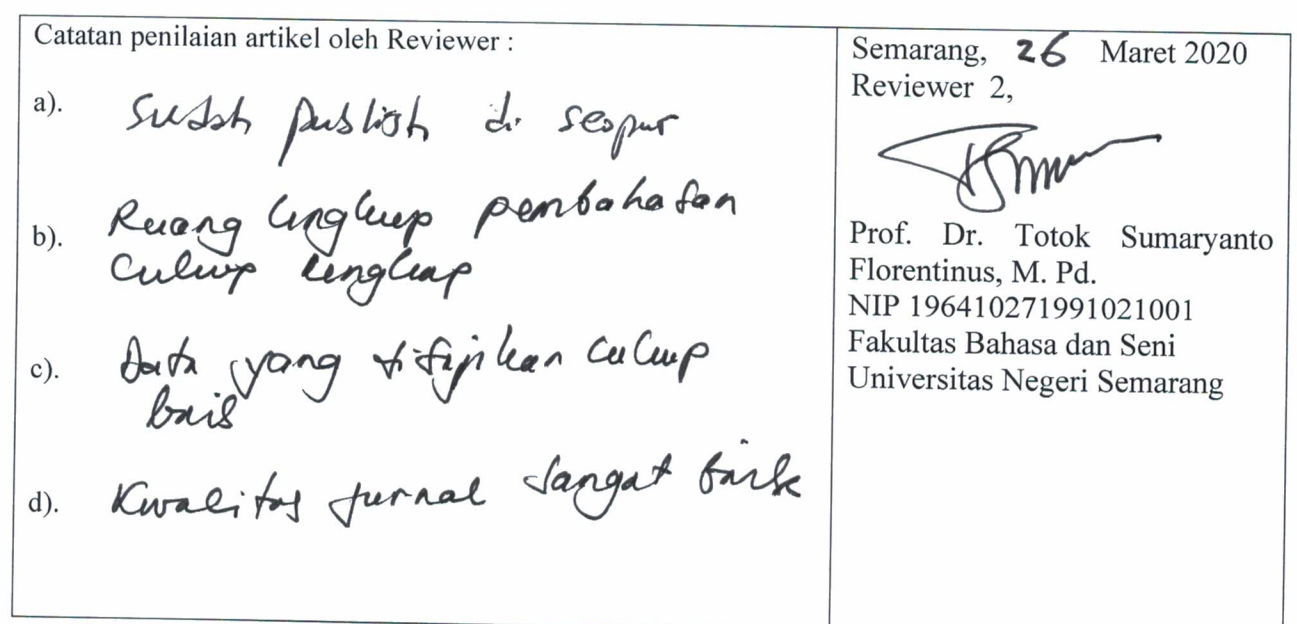 Catatan penilaian artikel oleh Reviewer :
a). Sudah publish di scopus
b). Ruang lingkup pembahasan
cukup lengkap
c). Data yang disajikan cukup
baik
d). Kwalitas jurnal sangat baik
Semarang, 26 Maret 2020
Reviewer 2,
Prof. Dr. Totok Sumaryanto
Florentinus, M. Pd.
NIP 196410271991021001
Fakultas Bahasa dan Seni
Universitas Negeri Semarang